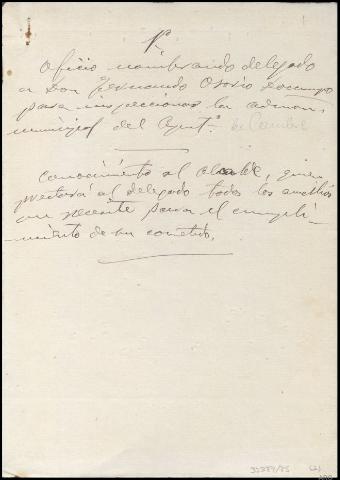 1º
Oficio nombrando delegado
a Don Fernando Osorio Docampo
para inspeccionar la admon.
municipal del Ayuntº. de Cambre
Conocimiento al alcalde, quien
prestará al delegado todos los auxilios
que necesite para el cumpli-
-miento de su cometido.